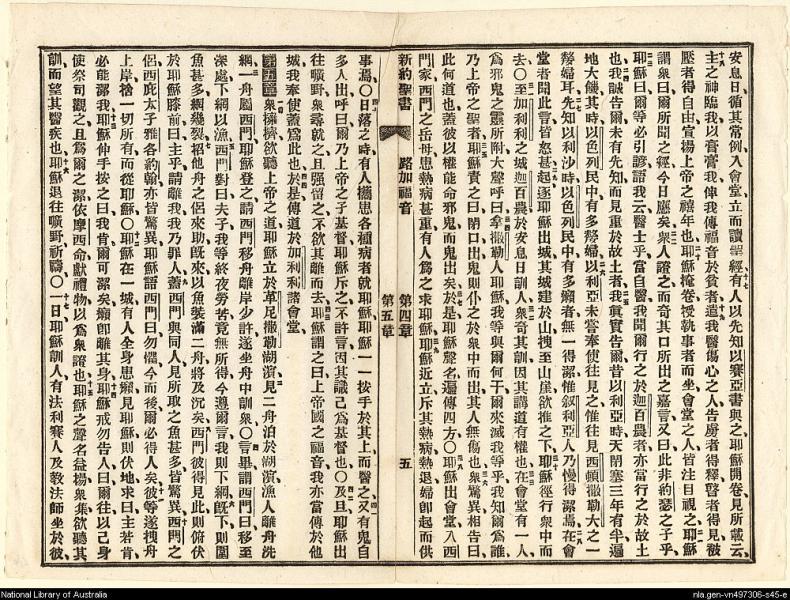 安息日循其常例入會堂立而讀聖經有人以先知以賽亞書與之耶穌開卷見所載云
主之神臨我以膏膏我俾我傳福音於貧者遣我醫傷心之人告虜者得釋瞽者得見被
壓者得自由宣揚上帝之禧年也耶穌掩卷授執事者而坐會堂之人皆注目視之耶穌
謂衆曰爾所聞之經今日應矣衆人證之而奇其口所出之嘉言又曰此非約瑟之子乎
耶穌曰爾等必引諺語我云醫士乎當自醫我聞爾行之於迦百農者亦當行之於故土
也我誠告爾未有先知而見重於故土者我眞實告爾昔以利亞時天閉塞三年有半遍
地大饑其時以色列民中有多嫠婦以利亞未嘗奉使往見之惟往見西頓撒勒大之一
嫠婦耳先知以利沙時以色列民中有多癩者無一得潔惟叙利亞人乃慢得潔焉在會
堂者聞此言皆怒甚起逐耶穌出城其城建於山拽至山崖欲推之下耶穌徑行衆中而
去○至加利利之城迦百農於安息日訓人衆奇其訓因其講道有權也在會堂有一人
爲邪鬼之靈所附大聲呼曰拿撒勒人耶穌我等與爾何干爾來滅我等乎我知爾爲誰
乃上帝之聖者耶穌責之曰閉口出鬼則仆之於衆中而出其人無傷也衆驚異相告曰
此何道也蓋彼以權能命邪鬼而鬼出矣於是耶穌聲名遍傳四方○耶穌出會堂入西
門家西門之岳母患熱病甚重有人爲之求耶穌耶穌近立斥其熱病熱退婦卽起而供
新約聖書 路加福音 第四章 五
第五章
事焉○日落之時有人攜患各種病者就耶穌耶穌一一按手於其上而醫之又有鬼自
多人出呼曰爾乃上帝之子基督耶穌斥之不許言因其識己爲基督也○及旦耶穌出
往曠野衆尋就之且強留之不欲其離而去耶穌謂之曰上帝國之福音我亦當傳於他
城我奉使蓋爲此也於是傳道於加利利諸會堂
第五章 衆擁擠欲聽上帝之道耶穌立於革尼撒勒湖濱見二舟泊於湖濱漁人離舟洗
網一舟屬西門耶穌登之請西門移舟離岸少許遂坐舟中訓衆○言畢謂西門曰移至
深處下網以漁西門對曰夫子我等終夜勞苦竟無所得今遵爾言我則下網旣下則圍
魚甚多網幾裂招他舟之侶來助旣來以魚裝滿二舟將及沉矣西門彼得見此則俯伏
於耶穌膝前曰主乎請離我我乃罪人蓋西門與同人見所取之魚甚多皆驚異西門之
侶西庇太子雅各約翰亦皆驚異耶穌語西門曰勿懼今而後爾必得人矣彼等遂拽舟
上岸捨一切所有而從耶穌○耶穌在一城有人全身患癩見耶穌則伏地求曰主若肯
必能潔我耶穌伸手按之曰我肯爾可潔矣癩卽離其身耶穌戒勿告人曰爾往以己身
使祭司觀之且爲爾之潔依摩西命獻禮物以爲衆證也耶穌之聲名益揚衆集欲聽其
訓而望其醫疾也耶穌退往曠野祈禱○一日耶穌訓人有法利賽人及敎法師坐於彼
National Library of Australia
nla.gen-vn497306-s45-e